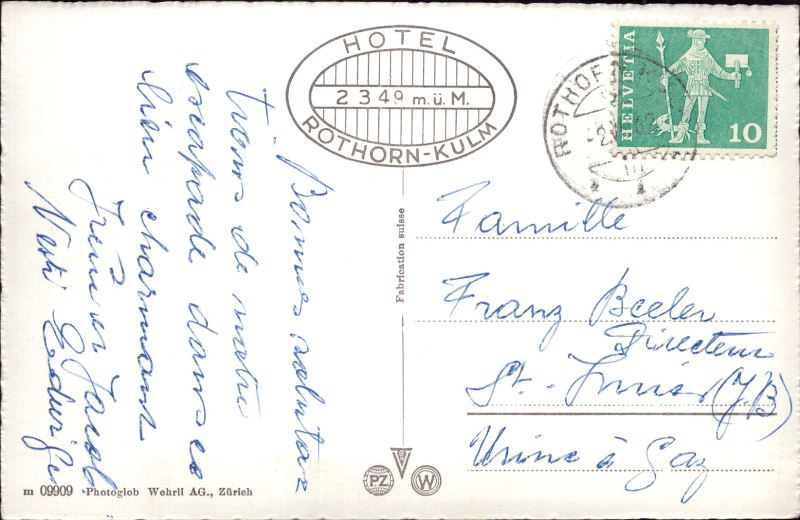 HOTEL
2349 m.ü.M.
ROTHORN-KULM
HELVETIA
10
ROTHO
Bonnes saluta
tions de notre
escapade dans ce
lieu charmant
Jacob
Vesti
Fabrication suisse
Famille
Franz Beeler
Directeur
St-Imier (J/B)
Usine à Gaz
PZ
W
m 09909 Photoglob Wehrli AG., Zürich